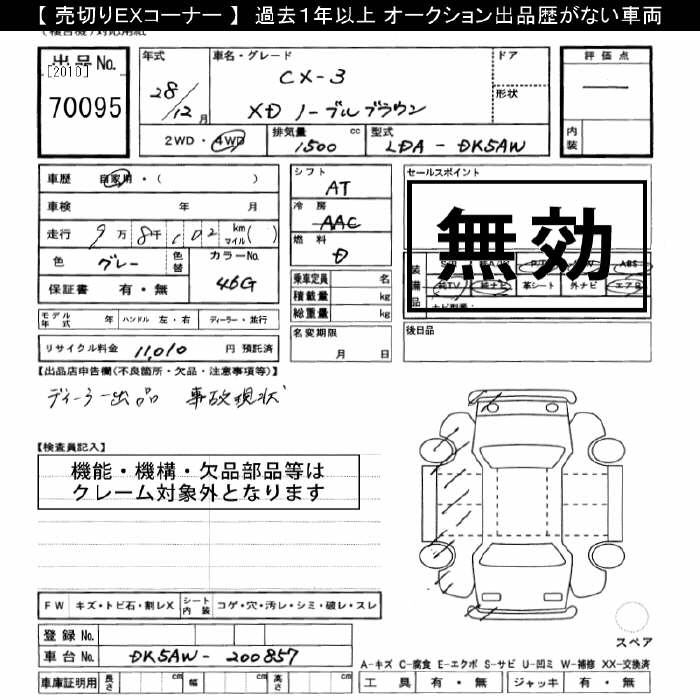 【 売切りEXコーナー 】 過去1年以上 オークション出品歴がない車両
出品No.
[2010]
70095
年式
28/12月
車名・グレード
CX-3
XD ノーブルブラウン
ドア
形状
2WD・4WD
排気量 cc
1500
型式
LDA - DK5AW
評価点
内装
車歴 自家用・( )
車検 年 月
走行 9万 8千 102 km マイル( )
色 グレー 色替
カラーNo. 46G
保証書 有・無
シフト
AT
冷房
AAC
燃料
D
乗車定員 名
積載量 kg
総重量 kg
セールスポイント
無効
純TV 純ナビ 革シート 外ナビ エアB
ABS
後日品
モデル年式 年 ハンドル 左・右 ディーラー・並行
名変期限
月 日
リサイクル料金 11,010 円 預託済
【出品店申告欄(不良箇所・欠品・注意事項等)】
ディーラー出品 事故現状
【検査員記入】
機能・機構・欠品部品等は
クレーム対象外となります
FW キズ・トビ石・割レX シート内装 コゲ・穴・汚レ・シミ・破レ・スレ
登録No.
車台No. DK5AW - 200857
スペア
A-キズ C-腐食 E-エクボ S-サビ U-凹ミ W-補修 XX-交換済
車庫証明用 長さ cm 幅 cm 高さ cm
工具 有・無 ジャッキ 有・無